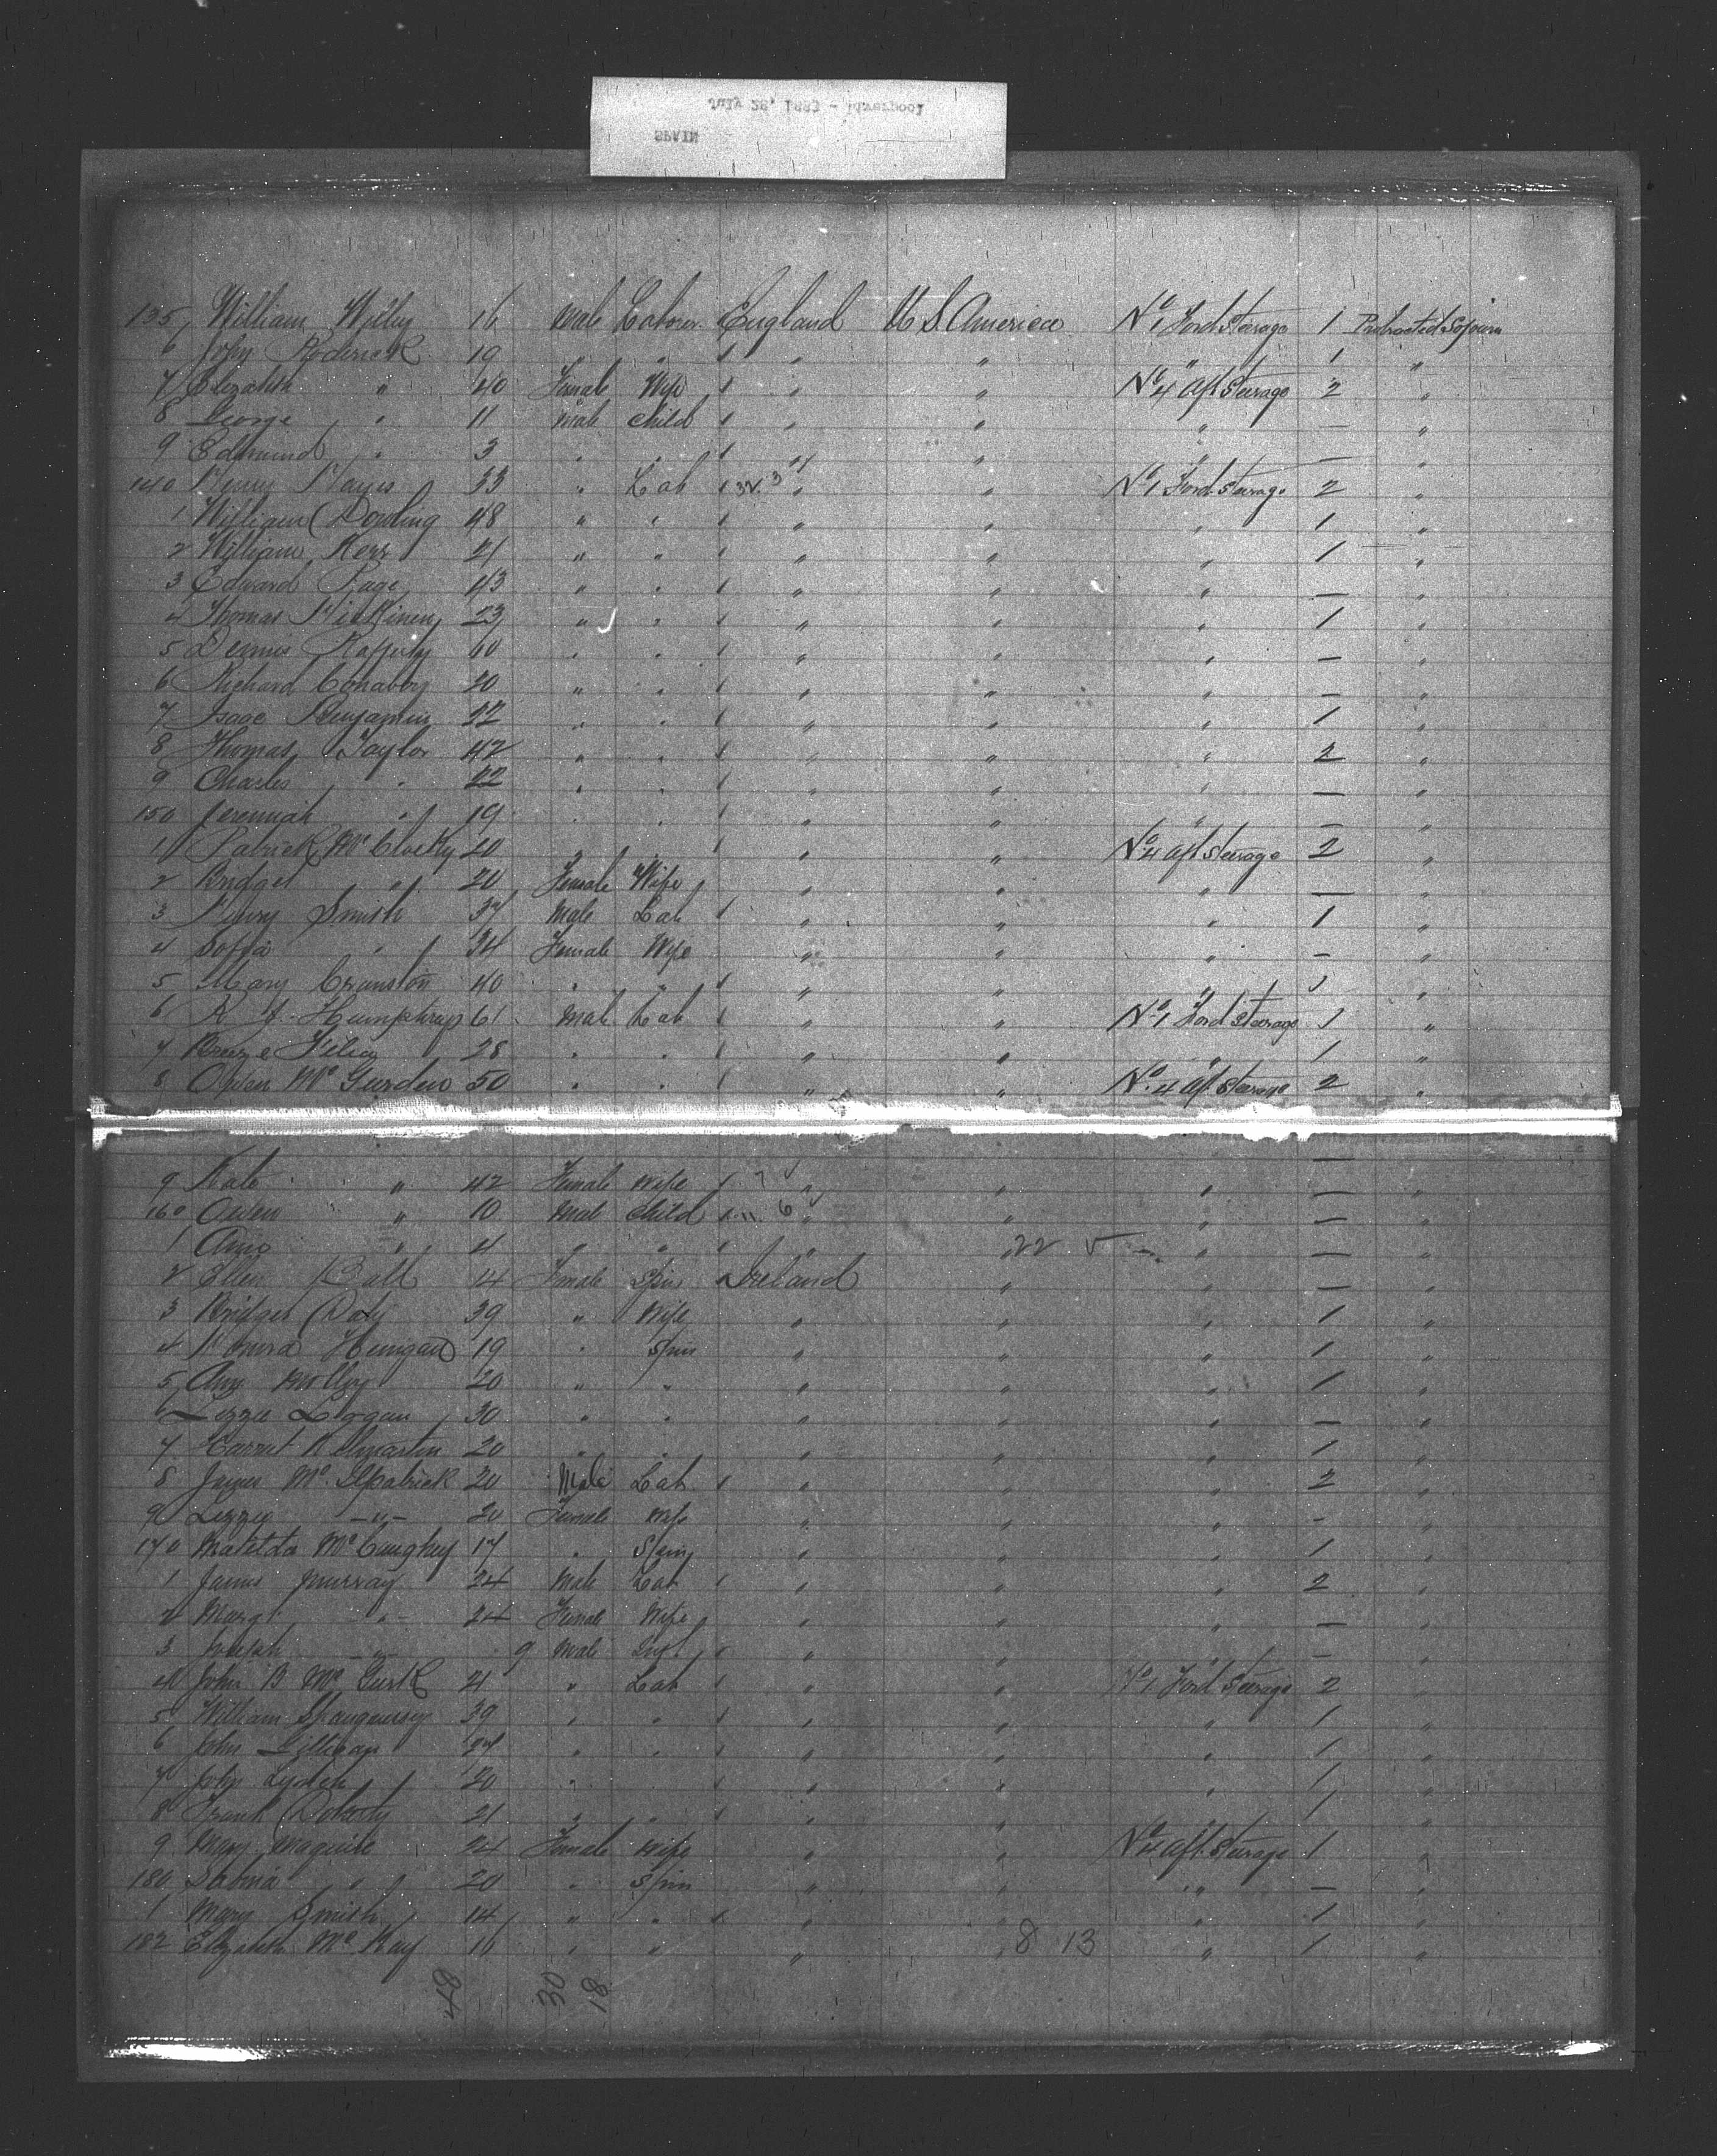 SPAIN
July 28, 1883 - Liverpool
135 William 16 Male Labourer England U S America No 1 Ford Steerage 1 Protracted Sojourn
6 John Roderick 19 " " " 1 "
7 Elizabeth " 40 Female Wife " " No 4 Aft Steerage 2 "
8 George " 11 Male Child " " " — "
9 Edmund " 3 " " " " " — "
140 Henry 33 " Lab " " No 1 Ford Steerage 2 "
1 William Dowling 48 " " " " " 1 "
2 William Kerr 21 " " " " " 1 "
3 Edward Page 43 " " " " " — "
4 Thomas 23 " " " " " 1 "
5 Dennis Rafferty " " " " " — "
6 Richard 20 " " " " " — "
7 Isaac Benjamin 22 " " " " " 1 "
8 Thomas Taylor 42 " " " " " 2 "
9 Charles " 22 " " " " " — "
150 Jeremiah " 19 " " " " " — "
1 Patrick 20 " " " " No 4 Aft Steerage 2 "
2 Bridget " 20 Female Wife " " " — "
3 Henry Smith 37 Male Lab " " " 1 "
4 Sofia " 34 Female Wife " " " — "
5 Mary Cranston 40 " " " " " 1 "
6 Humphreys 61 Male Lab " " No 1 Ford Steerage 1 "
7 28 " " " " " 1 "
8 Owen 50 " " " " No 4 Aft Steerage 2 "
9 Kate " 42 Female Wife " " " — "
160 Owen " 10 Male Child 6 " " " — "
1 " 4 " " " " 22 " — "
2 Ellen 14 Female Spin Ireland " " — "
3 Bridget Daly 39 " Wife " " " 1 "
4 19 " Spin " " " 1 "
5 20 " " " " " 1 "
6 Lizzie Logan 30 " " " " " — "
7 Harriet Kilmartin 20 " " " " " 1 "
8 James McIlpatrick 20 Male Lab " " " 2 "
9 Lizzie —"— 20 Female Wife " " " — "
170 Matilda McCaughey 17 " Spin " " " 1 "
1 James Murray 24 Male Lab " " " 2 "
2 Margt " 24 Female Wife " " " — "
3 Joseph " 9 Male Inft " " " — "
4 John B McGurk 21 " Lab " " No 1 Ford Steerage 2 "
5 William 39 " " " " " 1 "
6 John Gilligan " " " " " 1 "
7 John Lynch 20 " " " " " 1 "
8 Frank Doherty 21 " " " " " 1 "
9 Mary Maguire 24 Female Wife " " No 4 Aft Steerage 1 "
180 " 20 " Spin " " " — "
1 Mary Smith 14 " " " " " 1 "
182 Elizabeth McKay 16 " " " " 8 13 " 1 "
48 30 18